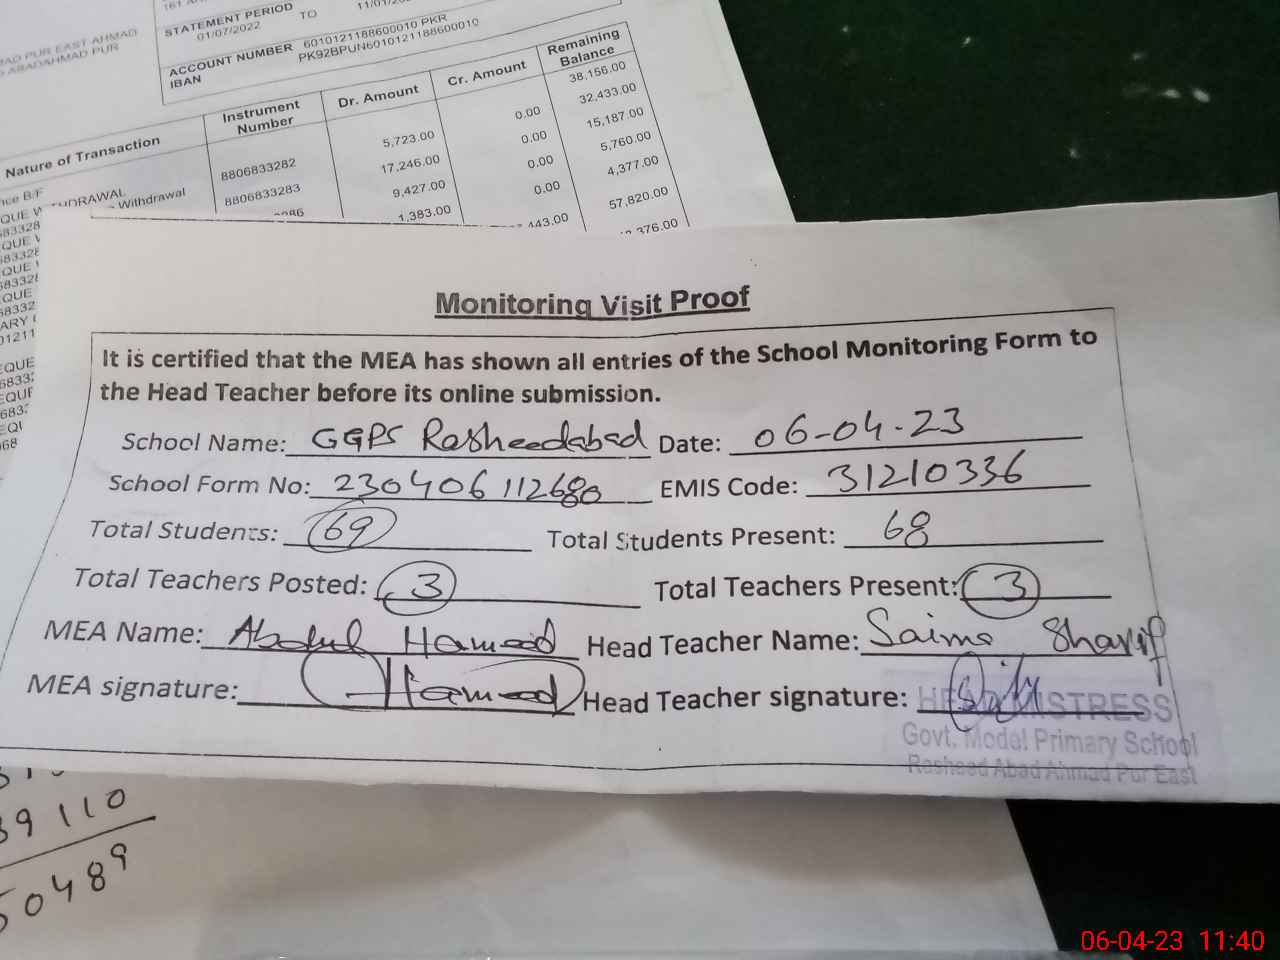 161
STATEMENT PERIOD
01/07/2022 TO
AD PUR EAST AHMAD
ABADAHMAD PUR
ACCOUNT NUMBER 6010121188600010 PKR
IBAN PK92BPUN6010121188600010
Nature of Transaction Instrument Number Dr. Amount Cr. Amount Remaining Balance
38,156.00
8806833282 5,723.00 0.00 32,433.00
8806833283 17,246.00 0.00 15,187.00
9,427.00 0.00 5,760.00
1,383.00 0.00 4,377.00
443.00 57,820.00
376.00
Withdrawal
Monitoring Visit Proof
It is certified that the MEA has shown all entries of the School Monitoring Form to
the Head Teacher before its online submission.
School Name: GGPS Rasheedabad Date: 06-04-23
School Form No: 230406112680 EMIS Code: 31210336
Total Students: 69 Total Students Present: 68
Total Teachers Posted: 3 Total Teachers Present: 3
MEA Name: Abdul Hameed Head Teacher Name: Saima Sharif
MEA signature: Hameed Head Teacher signature:
HEADMISTRESS
Govt. Model Primary School
Rasheed Abad Ahmad Pur East
39110
50489
06-04-23 11:40